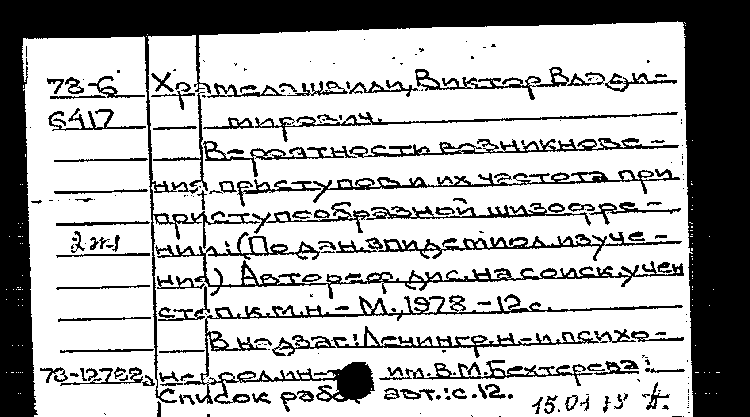 78-6 Храмелашвили, Виктор Влади-
6417 мирович.
Вероятности возникнове-
ния приступов и их частота при
приступообразной шизофре-
2 экз нии: (По дан. эпидемиол. изуче-
ния) Автореф. дис. на соиск. учен
степ. к.м.н. - М., 1978. - 12 с.
В надзаг: Ленингр. н.-и. психо-
78-12788 неврол. ин-т им. В.М. Бехтерева.
Список работ авт.: с. 12.
15.04 78